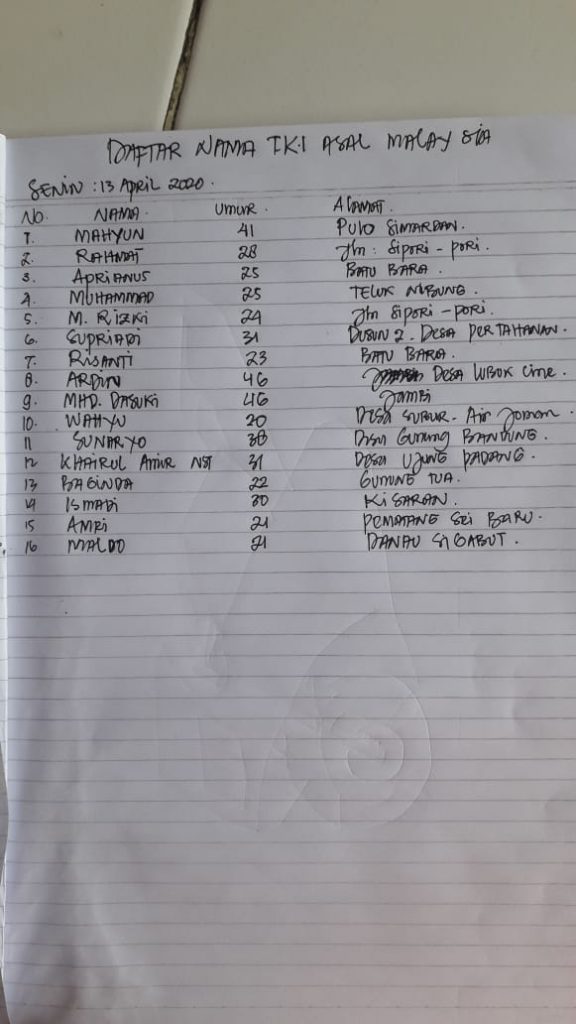 DAFTAR NAMA TKI ASAL MALAYSIA
SENIN : 13 April 2020.
No. NAMA. UMUR. ALAMAT.
1. MAHYUN 41 PULO SIMARDAN.
2. RAHMAT 28 Jln : Sipori - pori.
3. APRIANUS 25 BATU BARA.
4. MUHAMMAD 25 TELUK NIBUNG.
5. M. RIZKI 24 Jln sipori - pori.
6. SUPRIADI 31 DUSUN 2. DESA PERTAHANAN.
7. RISANTI 23 BATU BARA.
8. ARDIN 46 Desa LUBUK
9. MHD. DASUKI 46 Jambi
10. WAHYU 20 Desa SUBUR. Air Joman.
11 SUNARYO 38 Gunung BANDUNG.
12 KHAIRUL Amur NST 31 Desa UJUNG PADANG.
13 BAGINDA 22 GUNUNG TUA.
14 ISMADI 30 KISARAN.
15 AMRI 21 PEMATANG SEI BARU.
16 MALDO 21 DANAU SIGABUT.